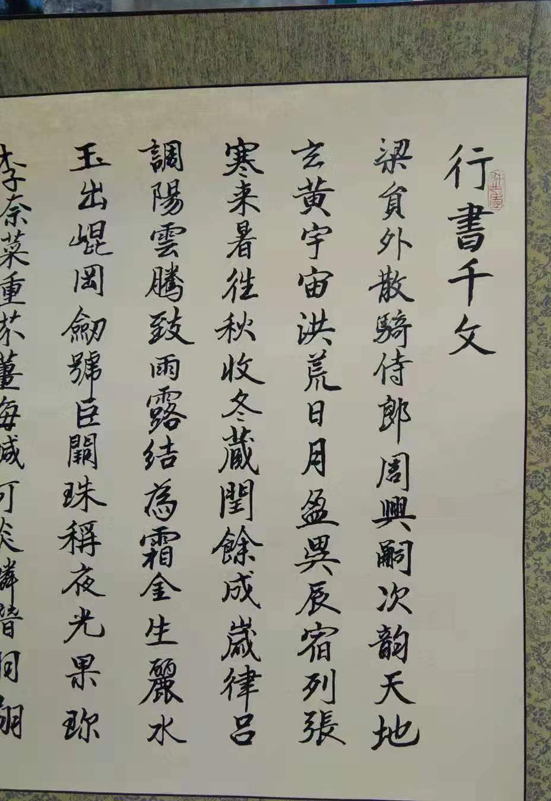 行書千文
梁貟外散騎侍郎周興嗣次韵天地
玄黄宇宙洪荒日月盈昃辰宿列張
寒来暑往秋收冬蔵閏餘成嵗律呂
調陽雲騰致雨露結為霜金生麗水
玉出崐岡劒號巨闕珠稱夜光果珎
李柰菜重芥薑海鹹河淡鱗潛羽翔